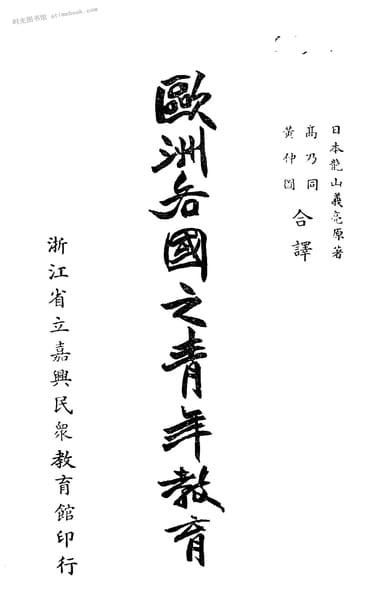 时光图书馆 stimebook.com
日本龍山義亮原著
高乃同
黃仲圖
合譯
歐洲各國之青年教育
浙江省立嘉興民眾教育館印行